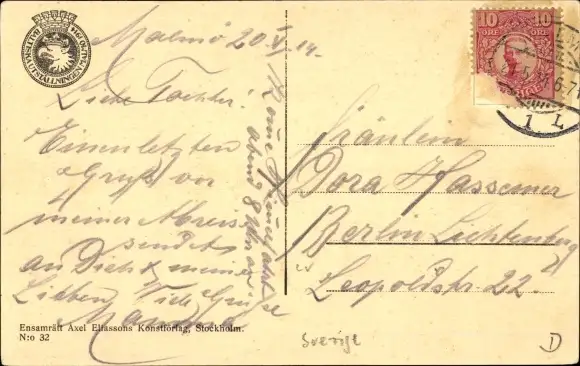 BALTISKA UTSTÄLLNINGEN MALMÖ 1914
Malmö 20 V 14.
Liebe Tochter!
Einen letzten
Gruß vor
meiner Abreise
sendet
an Dich & meine
Lieben
Tide Grüße
Mamma
Komme
abend 8 Uhr an
10 ÖRE 10 ÖRE
1 L
Fräulein
Dora Hassemer
Berlin Lichtenberg
Leopoldstr. 22.
Ensamrätt Axel Eliassons Konstförlag, Stockholm.
N:o 32
Sverige
D